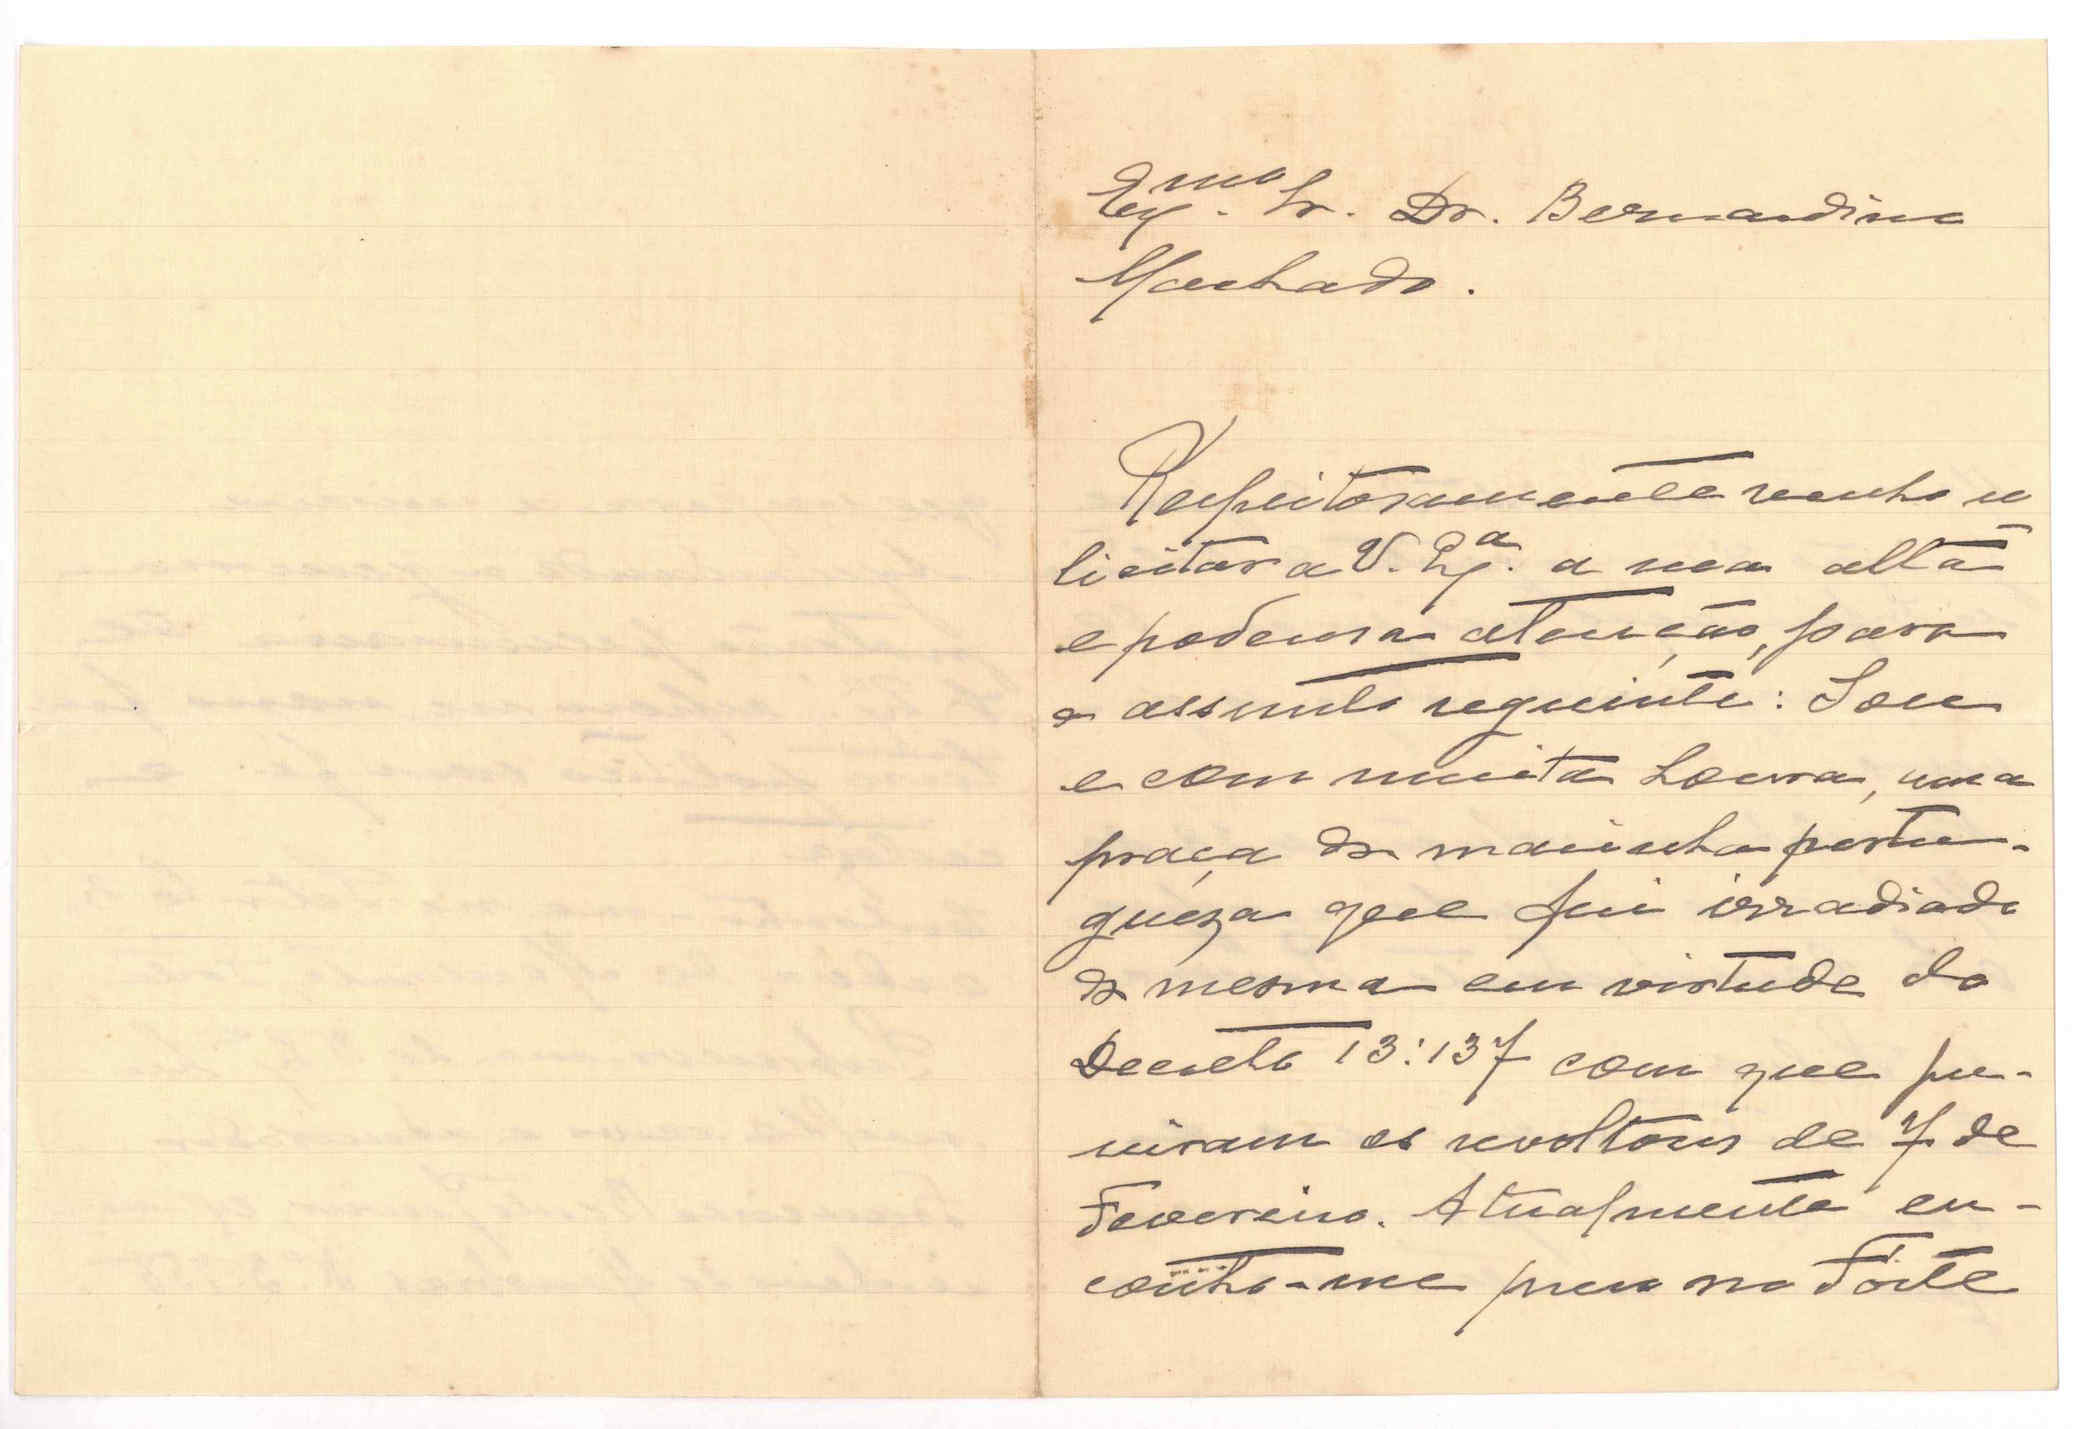 Exmo. Sr. Dr. Bernardino
Machado.
Respeitosamente venho so
licitar a V. Exa. a sua alta
e poderosa atenção, para
o assunto seguinte: Sou
e com muita honra, uma
praça da marinha portu-
guêza que fui irradiado
da mesma em virtude do
Decreto 13:137 com que pu-
niram os revoltosos de 7 de
Fevereiro. Atualmente en-
contro-me preso no Forte